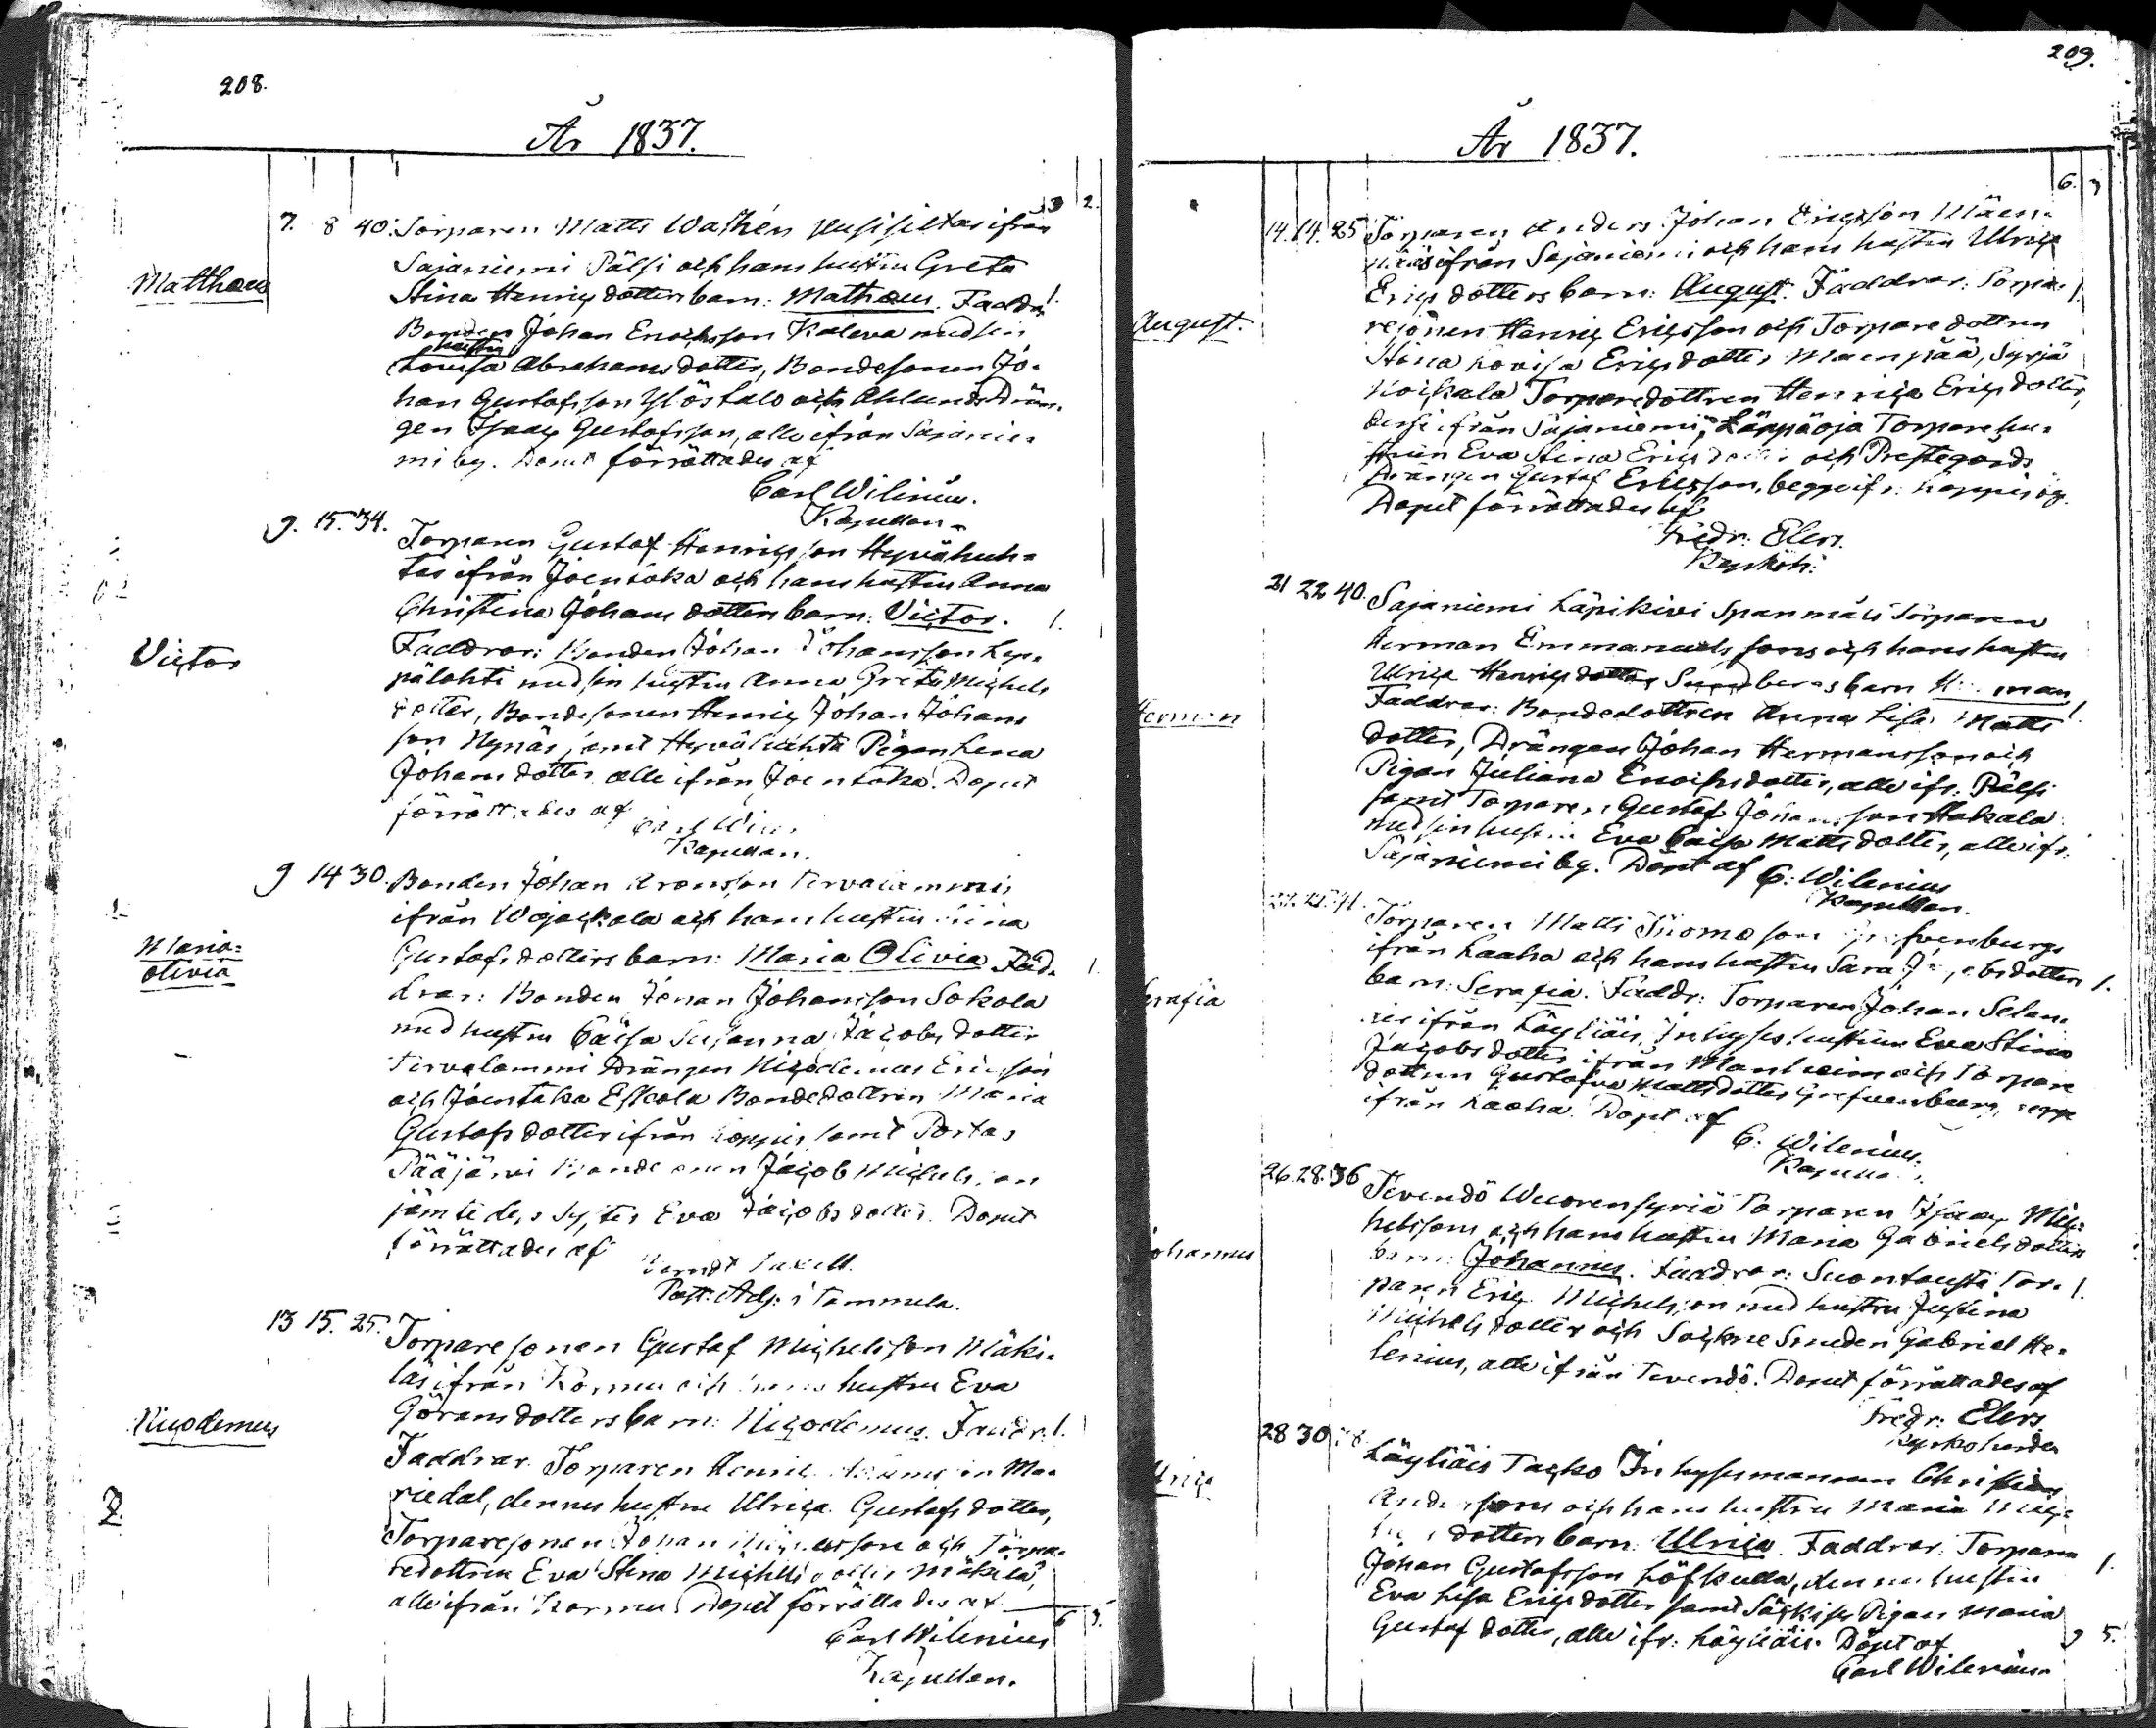 208.
År 1837.
3 2.
7. 8 40. Torparen Matts Wathén ifrån
Matthæus
Sajaniemi Pälsi och hans hustru Greta
Stina Henrics dotters barn: Mathæus. Faddr. 1.
Bonden Johan Enochsson Kaleva med sin
hustru
Lovisa Abrahams dotter, Bondesonen Jo-
han Gustafsson Ylöstalo och Ahlunds Drän-
gen Isaac Gustafsson, alle ifrån Sajanie-
mi by. Döpt förrättades af
Carl Wilenius.
Kapellan.
9. 15. 34. Torparen Gustaf Henricsson Hyvähuh-
tas ifrån Joentaka och hans hustru Anna
Christina Johans dotters barn: Victor. 1.
Victor
Faddrar: Bonden Johan Johansson Lep-
pälahti med sin hustru Anna Greta Michels
dotter, Bondesonen Henric Johan Johans
son Nynäs, samt Hyvähuhta Pigan Lena
Johans dotter alle ifrån Joentaka. Dopet
förrättades af
Carl
Kapellan.
9 14 30. Bonden Johan Aronsson Tervalammis
ifrån Wojackala och hans hustru Stina
Maria:
Olivia
Gustafs dotters barn: Maria Olivia Fad- 1.
drar: Bonden Johan Johansson Sokala
med hustru Caisa Susanna Jacobs dotter
Tervalammi Drängen Nicodemus Ericsson
och Joentaka Eskola Bondedottren Maria
Gustafs dotter ifrån Loppis samt Portas
Pääjärvi Bondesonen Jacob Michelsson
jämte dess syster Eva Jacobs dotter. Dopet
förrättades af
Past. Adj. i Tammela.
13 15. 25. Torparesonen Gustaf Michelsson Mäki-
läs ifrån Kormu och hans hustru Eva
Nicodemus
Görans dotters barn: Nicodemus. Faddr. 1.
Faddrar Torparen Henric Ma-
riedal, dennes hustru Ulrica Gustafs dotter,
Torparesonen Johan Michelsson och Torpa-
redottren Eva Stina Michels dotter Mäkilä,
alle ifrån Kormu Dopet förrättades af
6 3.
Carl Wilenius
Kapellan.
209.
År 1837.
6. 3
14. 14. 25 Torparen Anders Johan Ericsson Mäen-
pääs ifrån Sajaniemi och hans hustru Ulrica
Erics dotters barn: August. Faddrar: Torpa- 1.
August.
resonen Henric Ericsson och Torpare dottren
Stina Lovisa Erics dotter Mäenpää, Syrjä
Koiskala Torparedottren Henrica Erics dotter,
desse ifrån Sajaniemi, Läppäoja Torparehu-
strun Eva Stina Erics dotter och Prestegårds
Drängen Gustaf Ericsson, begge ifr: Loppis by.
Dopet förrättades af
Fredr: Elers.
Kyrkoh:
21 22 40. Sajaniemi Läpikivi Spanmåls Torparen
Herman Emmanuels sons och hans hustru
Ulrica Henrics dotter Sundbergs barn Herman 1.
Herman
Faddrar: Bondedottren Anna Lisa Matts
dotter, Drängen Johan Hermansson och
Pigan Juliana Enochs dotter, alle ifr: Pälsi
samt Torparen Gustaf Johansson Hakala
med sin hustru Eva Caisa Matts dotter, alle ifr:
Sajaniemi by. Döpt af C: Wilenius
Kapellan.
Torparen Matts Thomasson Grefvenburgs
ifrån Laaha och hans hustru Sara Jacobsdotters 1.
Serafia
barn: Serafia. Faddr: Torparen Johan Selen-
ifrån Läyliäis, Inhyses hustrun Eva Stina
Jacobs dotter ifrån Manheim och Torpare
dottren Gustafva Mattsdotter Grefvenburg, begge
ifrån Laaha. Dopet af
C. Wilenius.
Kapellan.
26. 28. 36 Tevendö Wuorensyriä Torparen Isaac Mic-
helssons och hans hustru Maria Gabriels dotters
Johannes
barn: Johannes. Faddrar: Suontausta Tor- 1.
paren Eric Michelsson med hustru Justina
Michels dotter och Sockne Smeden Gabriel He-
lenius, alle ifrån Tevendö. Dopet förrättades af
Fredr: Elers
Kyrkoherde
28 30 Läyliäis Tacko Inhysesmannen Christian
Anderssons och hans hustru Maria
Ulrica
dotters barn: Ulrica. Faddrar: Torparen 1.
Johan Gustafsson Löfkulla, dennes hustru
Eva Lisa Erics dotter samt Säckis Pigan Maria
Gustaf dotter, alle ifr: Läyliäis. Döpt af
9 5.
Carl Wilenius